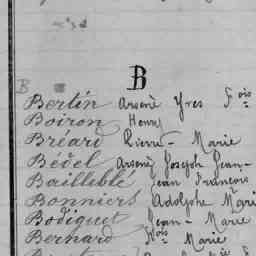 B
B
Bertin Arsène Yves Fois
Boiron Henry
Bréard Pierre-Marie
Bédel Arsène Joseph Jean-
Bailleblé Jean François
Bonniers Adolphe Mari
Bodiguet Jean-Marie
Bernard Nois Marie